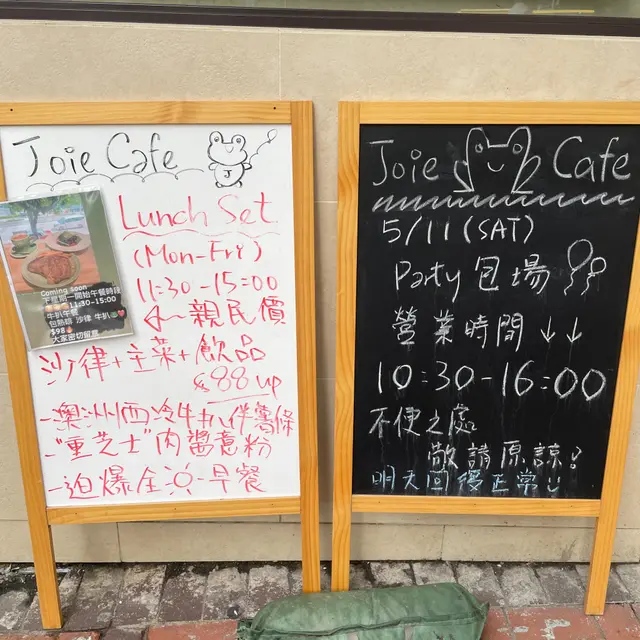 Joie Cafe
Lunch Set
(Mon-Fri)
11:30-15:00
親民價
沙律+主菜+飲品
$88 up
-澳洲西冷牛扒伴薯條
-"重芝士"肉醬意粉
-迫爆全日早餐
Coming soon
下星期一開始午餐時段
11:30-15:00
牛扒午餐
包熱飲 沙律 牛扒
$98
大家密切留意
Joie Cafe
5/11(SAT)
Party 包場
營業時間 ↓↓
10:30-16:00
不便之處
敬請原諒!
明天回復正常